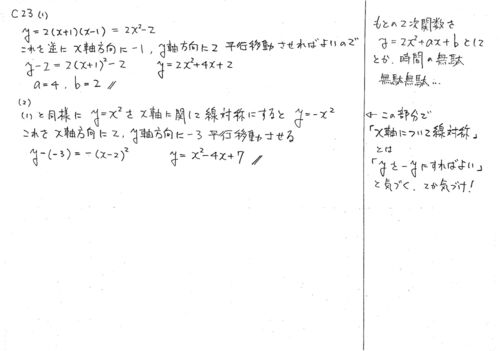 C23 (1)
y=2(x+1)(x-1) = 2x²-2
これを逆に x軸方向に-1, y軸方向に2 平行移動させればよいので
y-2=2(x+1)²-2  y=2x²+4x+2
a=4, b=2 //
(2)
(1)と同様に y=x² を x軸に関して線対称にすると y=-x²
これを x軸方向に2, y軸方向に-3 平行移動させる
y-(-3)=-(x-2)²  y=x²-4x+7 //
もとの2次関数を
y=2x²+ax+b として
とか、時間の無駄
無駄無駄…
← この部分で
「x軸について線対称」
とは
「yを-yにすればよい」
と気づく、てか気づけ!